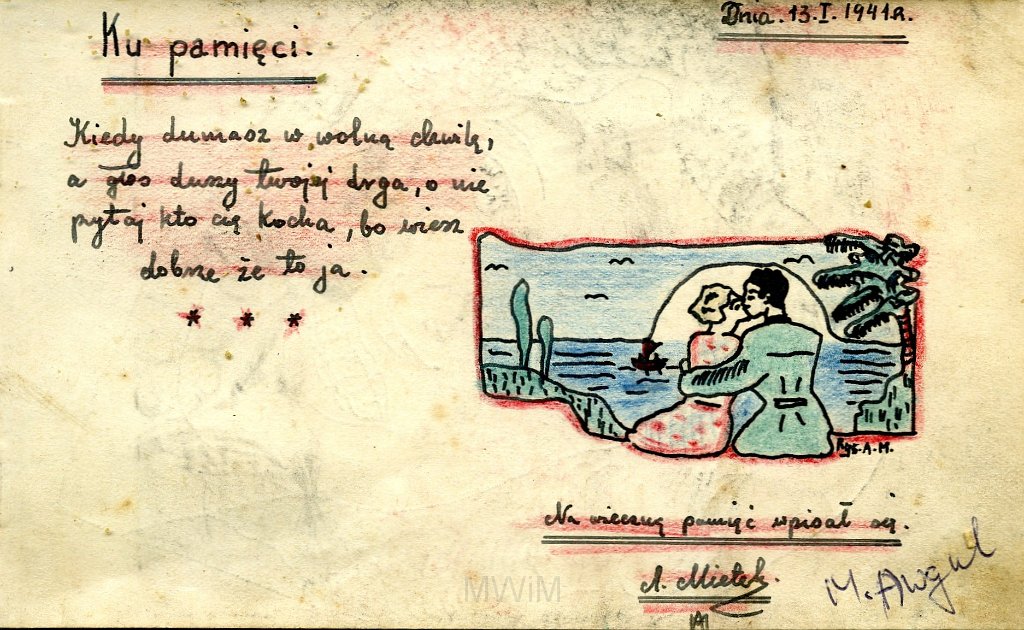 Dnia. 13.I.1941r.
Ku pamięci.
Kiedy dumasz w wolną chwilę,
a głos duszy twojej drga, o nie
pytaj kto cię kocha, bo wiesz
dobrze że to ja.
* * *
Rys. A-M.
Na wieczną pamięć wpisał się.
A. Mietek.
M. Awgul
MWiM